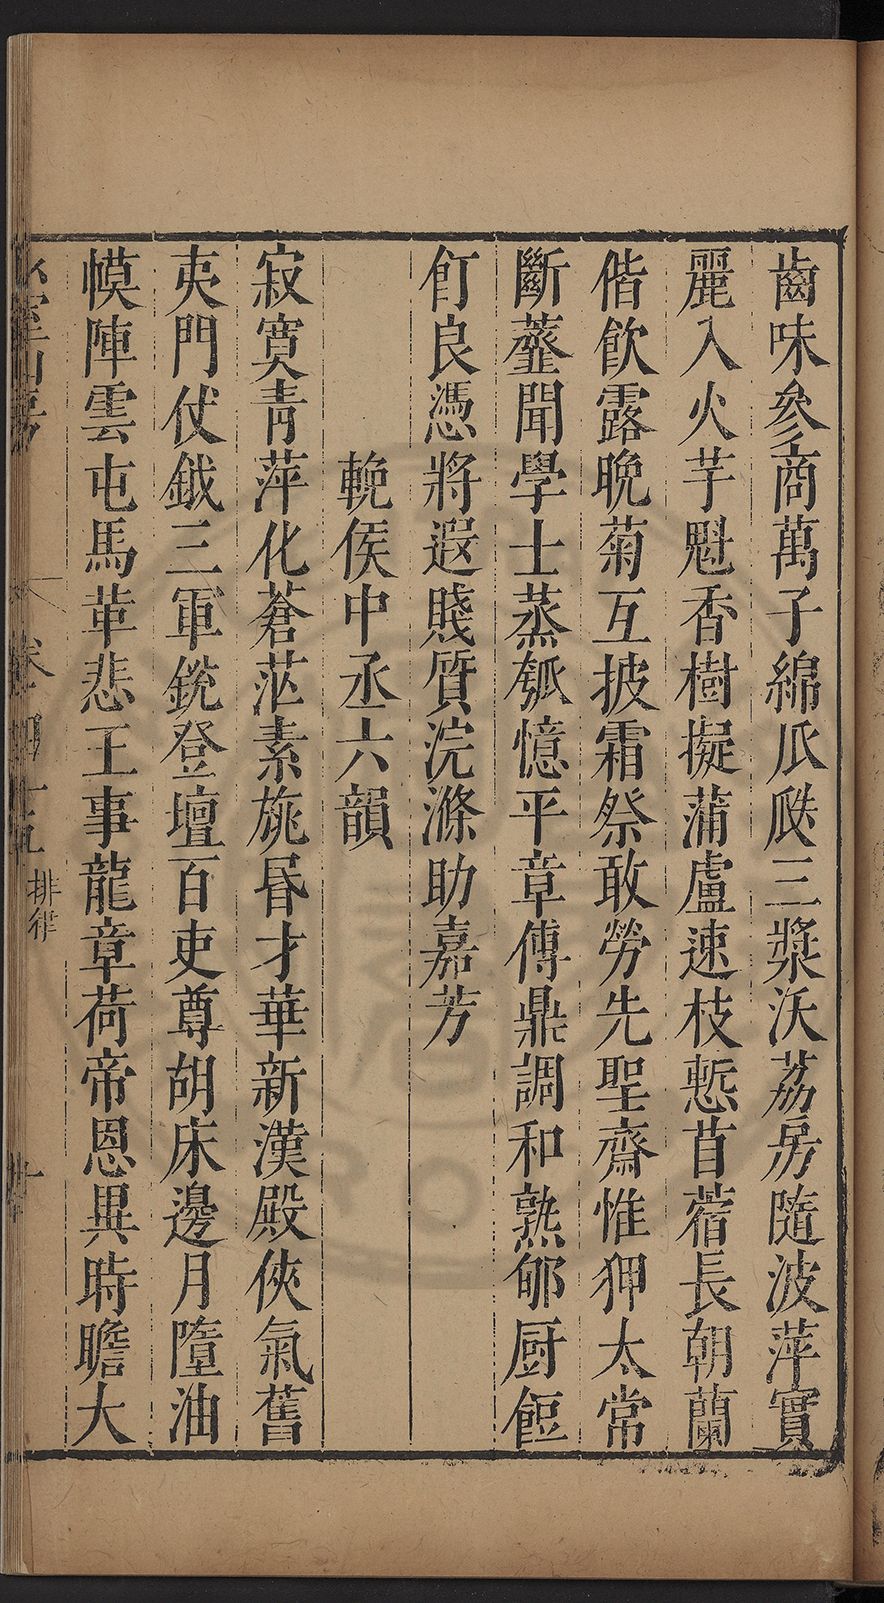 齒味參商萬子綿瓜瓞三漿沃荔房隨波萍實
麗入火芋魁香樹擬蒲盧速枝慙苜蓿長朝蘭
偕飲露晚菊互披霜祭敢勞先聖齋惟狎太常
斷虀聞學士蒸瓠憶平章傅鼎調和熟郇厨餖
飣良憑將遐賤質浣滌助嘉芳
輓侯中丞六韻
寂寞青萍化蒼茫素旐昏才華新漢殿俠氣舊
夷門伏鉞三軍銃登壇百吏尊胡床邊月墮油
幙陣雲屯馬革悲王事龍章荷帝恩異時瞻大
山房
卷十四
排律